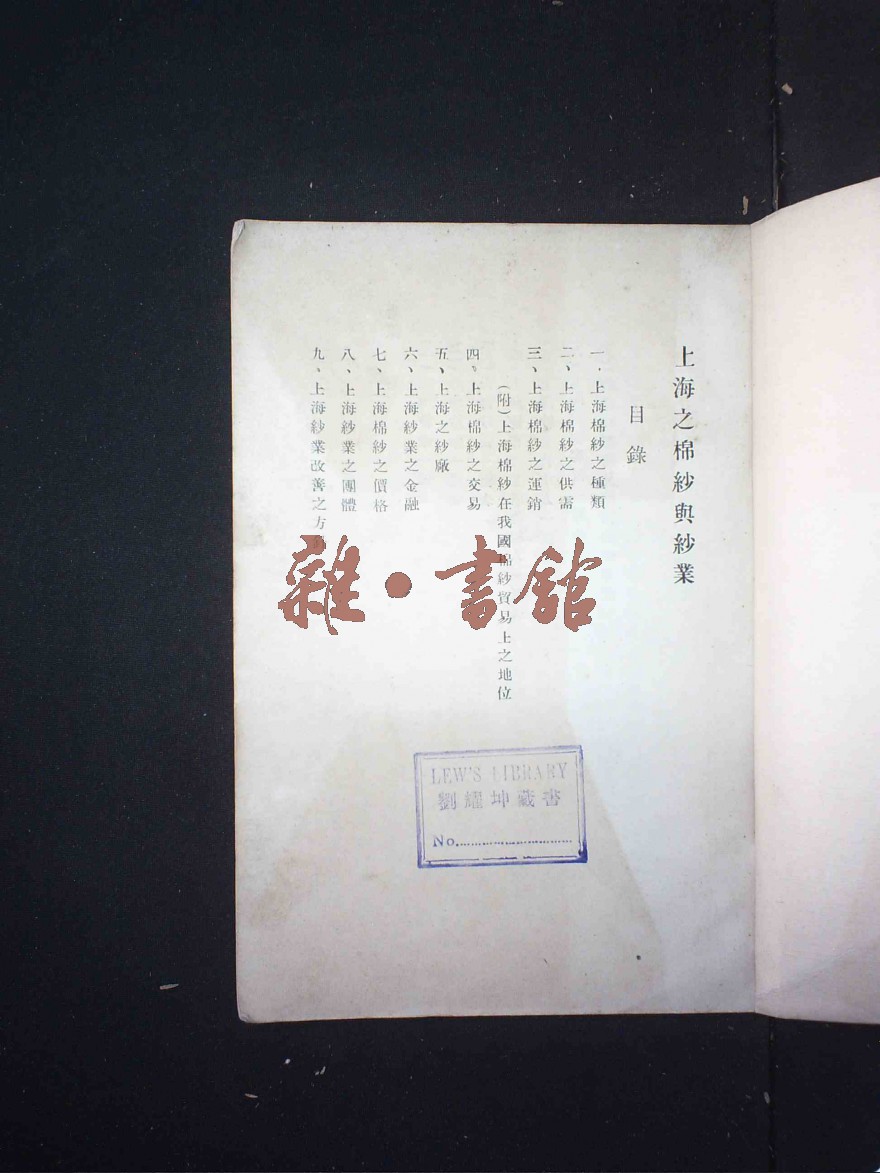 上海之棉紗與紗業
目錄
一、上海棉紗之種類
二、上海棉紗之供需
三、上海棉紗之運銷
(附)上海棉紗在我國棉紗貿易上之地位
四、上海棉紗之交易
五、上海之紗廠
六、上海紗業之金融
七、上海棉紗之價格
八、上海紗業之團體
九、上海紗業改善之方
雜・書館
LEW'S LIBRARY
劉燿坤藏書
No.